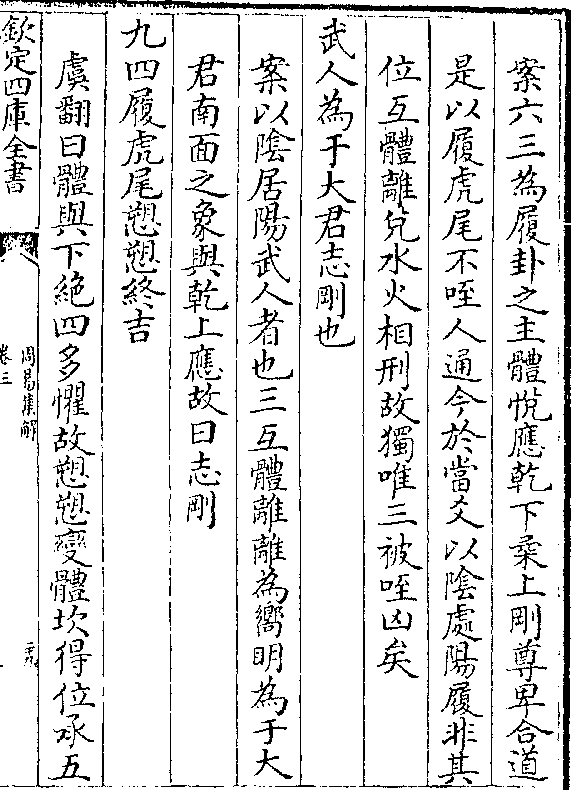 案六三為履卦之主體恱應乾下柔上剛尊卑合道
是以履虎尾不咥人通今於當爻以陰處陽履非其
位互體離兌水火相刑故獨唯三被咥凶矣
武人為于大君志剛也
案以陰居陽武人者也三互體離離為嚮明為于大
君南面之象與乾上應故曰志剛
九四履虎尾愬愬終吉
虞翻曰體與下絶四多懼故愬愬變體坎得位承五
欽定四庫全書
周易集解
卷三